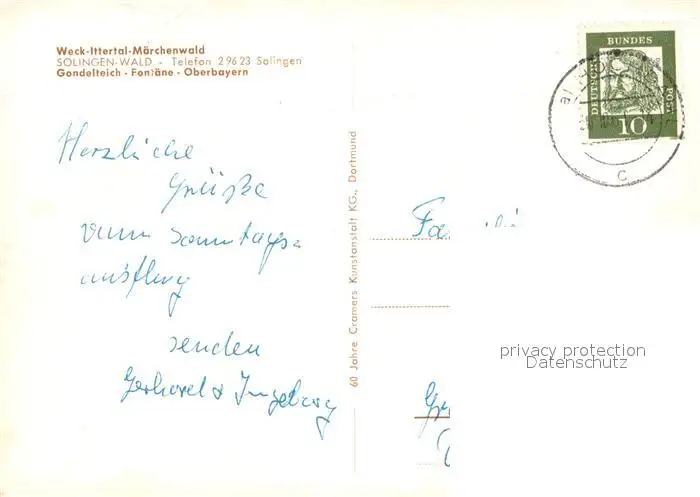 Weck-Ittertal-Märchenwald
SOLINGEN-WALD - Telefon 2 96 23 Solingen
Gondelteich - Fontäne - Oberbayern
Herzliche
Grüße
vom Sonntags-
ausflug
senden
Gerhard & Ingeborg
60 Jahre Cramers Kunstanstalt KG., Dortmund
DEUTSCHE
BUNDES
POST
10
c
privacy protection
Datenschutz